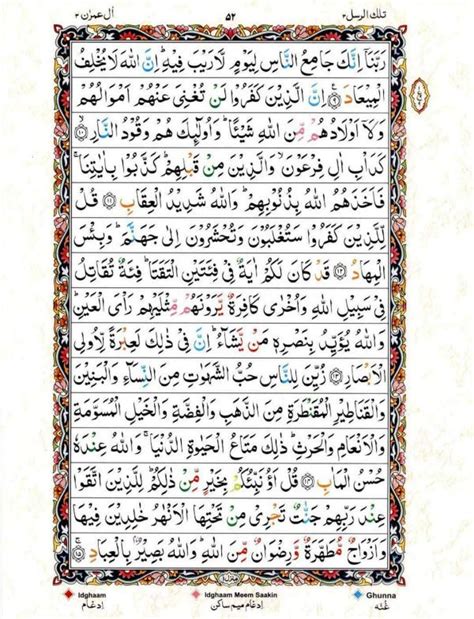 تلك الرسل ٣ ٥٢ اٰل عمرٰن ٣
رَبَّنَاۤ اِنَّكَ جَامِعُ النَّاسِ لِيَوْمٍ لَّا رَيْبَ فِيْهِ ؕ اِنَّ اللّٰهَ لَا يُخْلِفُ
الْمِيْعَادَ ۟﴿۹﴾ اِنَّ الَّذِيْنَ كَفَرُوْا لَنْ تُغْنِىَ عَنْهُمْ اَمْوَالُهُمْ
وَلَاۤ اَوْلَادُهُمْ مِّنَ اللّٰهِ شَيْئًا ؕ وَاُولٰٓئِكَ هُمْ وَقُوْدُ النَّارِ ۙ﴿۱۰﴾
كَدَاْبِ اٰلِ فِرْعَوْنَ ۙ وَالَّذِيْنَ مِنْ قَبْلِهِمْ ؕ كَذَّبُوْا بِاٰيٰتِنَا ۚ
فَاَخَذَهُمُ اللّٰهُ بِذُنُوْبِهِمْ ؕ وَاللّٰهُ شَدِيْدُ الْعِقَابِ ﴿۱۱﴾ قُلْ
لِّلَّذِيْنَ كَفَرُوْا سَتُغْلَبُوْنَ وَتُحْشَرُوْنَ اِلٰى جَهَنَّمَ ؕ وَبِئْسَ
الْمِهَادُ ﴿۱۲﴾ قَدْ كَانَ لَكُمْ اٰيَةٌ فِىْ فِئَتَيْنِ الْتَقَتَا ؕ فِئَةٌ تُقَاتِلُ
فِىْ سَبِيْلِ اللّٰهِ وَاُخْرٰى كَافِرَةٌ يَّرَوْنَهُمْ مِّثْلَيْهِمْ رَاْىَ الْعَيْنِ ؕ
وَاللّٰهُ يُؤَيِّدُ بِنَصْرِهٖ مَنْ يَّشَآءُ ؕ اِنَّ فِىْ ذٰلِكَ لَعِبْرَةً لِّاُولِى
الْاَبْصَارِ ﴿۱۳﴾ زُيِّنَ لِلنَّاسِ حُبُّ الشَّهَوٰتِ مِنَ النِّسَآءِ وَالْبَنِيْنَ
وَالْقَنَاطِيْرِ الْمُقَنْطَرَةِ مِنَ الذَّهَبِ وَالْفِضَّةِ وَالْخَيْلِ الْمُسَوَّمَةِ
وَالْاَنْعَامِ وَالْحَرْثِ ؕ ذٰلِكَ مَتَاعُ الْحَيٰوةِ الدُّنْيَا ۚ وَاللّٰهُ عِنْدَهٗ
حُسْنُ الْمَاٰبِ ﴿۱۴﴾ قُلْ اَؤُنَبِّئُكُمْ بِخَيْرٍ مِّنْ ذٰلِكُمْ ؕ لِلَّذِيْنَ اتَّقَوْا
عِنْدَ رَبِّهِمْ جَنّٰتٌ تَجْرِىْ مِنْ تَحْتِهَا الْاَنْهٰرُ خٰلِدِيْنَ فِيْهَا
وَاَزْوَاجٌ مُّطَهَّرَةٌ وَّرِضْوَانٌ مِّنَ اللّٰهِ ؕ وَاللّٰهُ بَصِيْرٌۢ بِالْعِبَادِ ۚ﴿۱۵﴾
Idghaam Idghaam Meem Saakin Ghunna
ادغام ادغام میم ساکن غنّہ